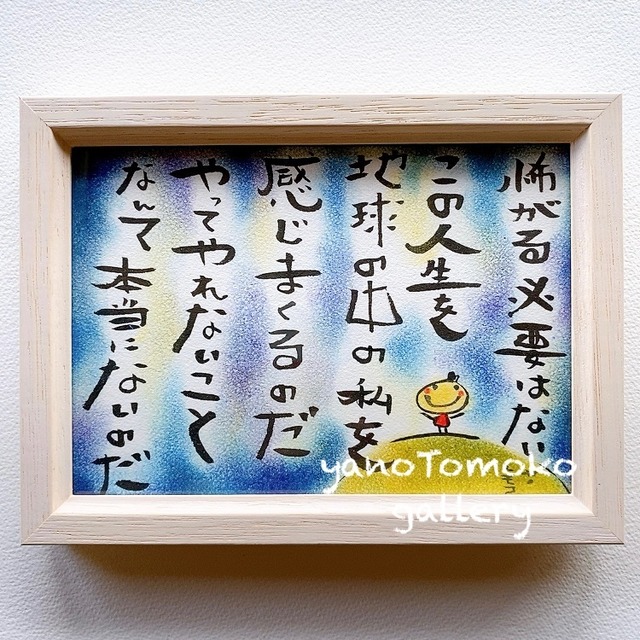 怖がる必要はない。
この人生を
地球の中の私を
感じまくるのだ
やってやれないこと
なんて本当にないのだ
モコ
yanoTomoko
gallery